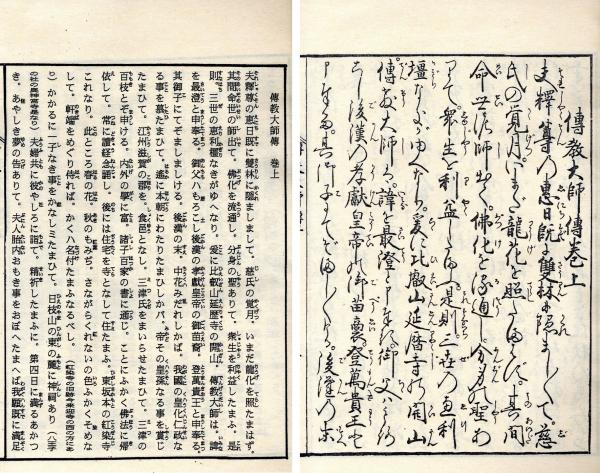 傳教大師傳巻上
夫釋尊の惠日既に雙林に隠ましまして。慈
氏の覚月。いまだ龍花を照たまはず。其間
命世の師出て。佛化を流通し。分身の聖あり
て。衆生を利益したまふ。是則。三世の惠利
なきがゆへなり。爰に比叡山延暦寺の開山
傳教大師は。諱を最澄と申奉る。御父はもろ
こし後漢の孝獻皇帝の御苗裔。登萬貴王と
申奉る。其御子にてぞましましける。後漢の末
傳教大師傳 巻上
夫釋尊の惠日既に雙林に隠ましまして、慈氏の覚月、いまだ龍化を照たまはず。
其間命世の師出て、佛化を流通し、分身の聖ありて、衆生を利益したまふ。是
則、三世の惠利なきがゆへなり。爰に比叡山延暦寺の開山、傳教大師は、諱
を最澄と申奉る。御父はもろこし後漢の孝獻皇帝の御苗裔、登萬貴王と申奉る。
其御子にてぞましましける。後漢の末、中花みだれしかば、我國の皇化仁政な
る事を慕たまひて、遙に本朝にわたりたまひしかバ、帝その皇孫なる事を賞じ
たまひて、江州滋賀の郡を、食邑となし、三津氏をまいらせたまひて、三津の
百枝とぞ申ける。内外の學に富、諸子百家の書に通じ、ことにふかく佛法に歸
依して、常に讀經念誦し、後には住宅を寺となして住たまふ。東坂本の紅染寺
これなり。此ところ春の花、秋のもみぢ、さながらくれないの色ふかくそめな
して、軒端をめぐり侍れば、かくハ名付たまふなるべし。
かかるに一子なき事をかなしミたまひて、日枝山の東の麓に神祠あり
夫婦共に彼やしろに詣て、精祈したまふに、第四日に満るあかつ
き、あやしき夢の告ありて、夫人胎内おもき事をおぼへたまへば、我願既に満足